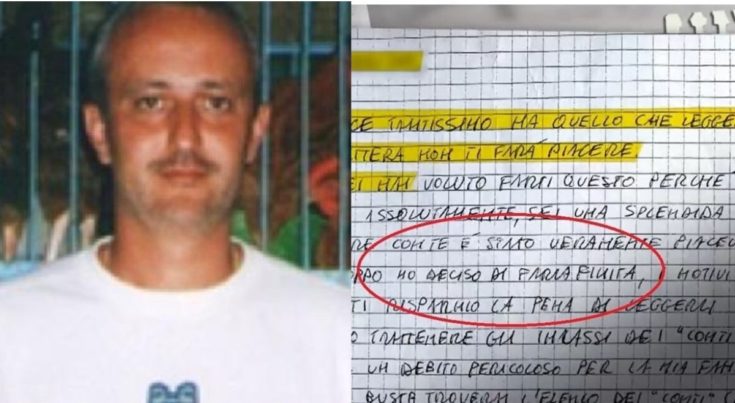 CE TANTISSIMO MA QUELLO CHE LEGGE
ETTERA NON TI FARÀ PIACERE.
EI MAI VOLUTO FARTI QUESTO PERCHÈ
ASSOLUTAMENTE, SEI UNA SPLENDIDA
RE CON TE E STATO VERAMENTE PIACEV
HO DECISO DI FARLA FINITA, I MOTIVI
TI RISPARMIO LA PENA DI LEGGERLI
O TRATTENERE GLI INCASSI DEI "CONTI
UN DEBITO PERICOLOSO PER LA MIA FAM
BUSTA TROVERAI L'ELENCO DEI "CONTI"